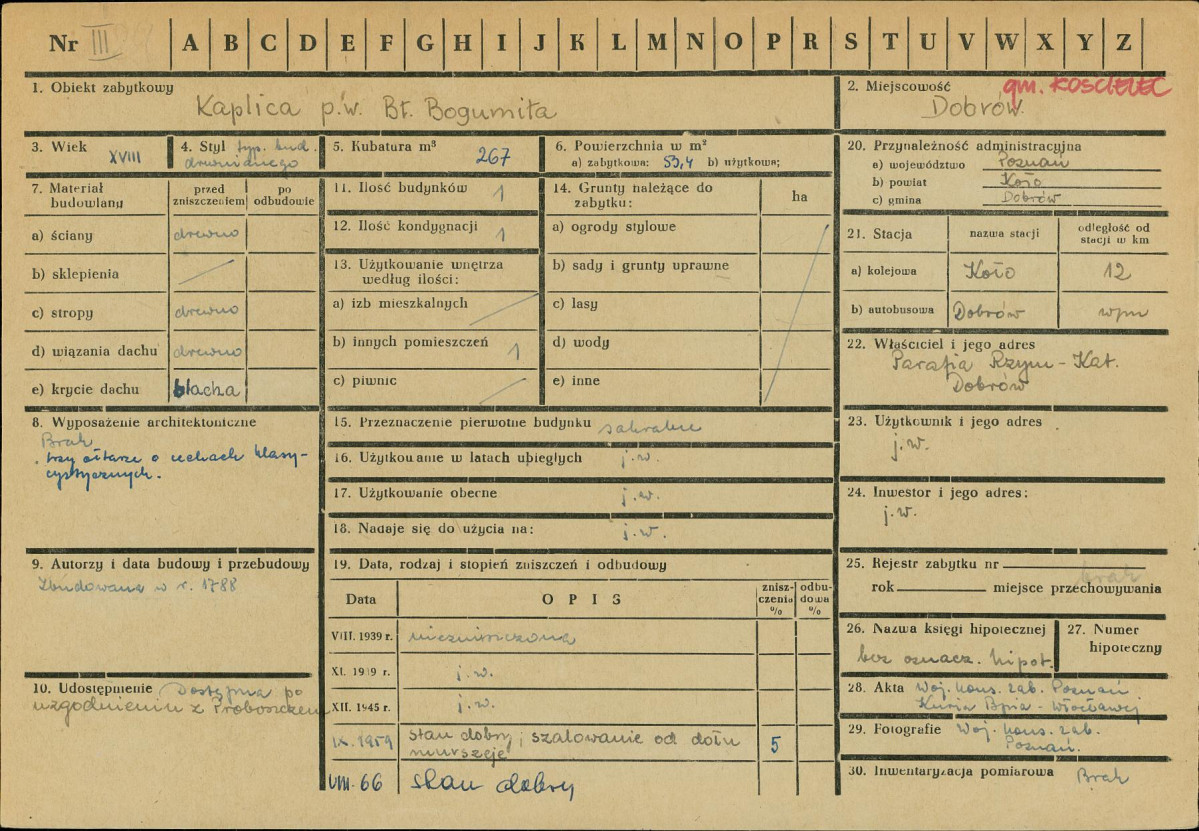 Nr III A B C D E F G H I J K L M N O P R S T U V W X Y Z
1. Obiekt zabytkowy
Kaplica p.w. Bł. Bogumiła
2. Miejscowość gm. KOŚCIELEC
Dobrów
3. Wiek XVIII
4. Styl typ. bud.
drewnianego
5. Kubatura m³ 267
6. Powierzchnia w m²
a) zabytkowa: 53,4 b) użytkowa;
7. Materiał budowlany
przed zniszczeniem
po odbudowie
a) ściany drewno
b) sklepienia
c) stropy drewno
d) wiązania dachu drewno
e) krycie dachu blacha
8. Wyposażenie architektoniczne
Brak
trzy ołtarze o cechach klasy-
cystycznych.
9. Autorzy i data budowy i przebudowy
Zbudowana w r. 1788
10. Udostępnienie Dostępna po
uzgodnieniu z Proboszczem
11. Ilość budynków 1
12. Ilość kondygnacji 1
13. Użytkowanie wnętrza
według ilości:
a) izb mieszkalnych
b) innych pomieszczeń 1
c) piwnic
14. Grunty należące do
zabytku:
ha
a) ogrody stylowe
b) sady i grunty uprawne
c) lasy
d) wody
e) inne
15. Przeznaczenie pierwotne budynku sakralne
16. Użytkowanie w latach ubiegłych j.w.
17. Użytkowanie obecne j.w.
18. Nadaje się do użycia na: j.w.
19. Data, rodzaj i stopień zniszczeń i odbudowy
Data OPIS znisz-
czenia
% odbu-
dowa
%
VIII. 1939 r. niezniszczona
XI. 1939 r. j.w.
XII. 1945 r. j.w.
IX. 1959 stan dobry; szalowanie od dołu
murszeje 5
VIII. 66 stan dobry
20. Przynależność administracyjna
a) województwo Poznań
b) powiat Koło
c) gmina Dobrów
21. Stacja nazwa stacji odległość od
stacji w km
a) kolejowa Koło 12
b) autobusowa Dobrów wpm
22. Właściciel i jego adres
Parafia Rzym-Kat.
Dobrów
23. Użytkownik i jego adres
j.w.
24. Inwestor i jego adres:
j.w.
25. Rejestr zabytku nr
brak
rok miejsce przechowywania
26. Nazwa księgi hipotecznej
bez oznacz. hipot.
27. Numer
hipoteczny
28. Akta Woj. kons. zab. Poznań
Kuria Bpia - Włocławej
29. Fotografie Woj. kons. zab.
Poznań.
30. Inwentaryzacja pomiarowa Brak